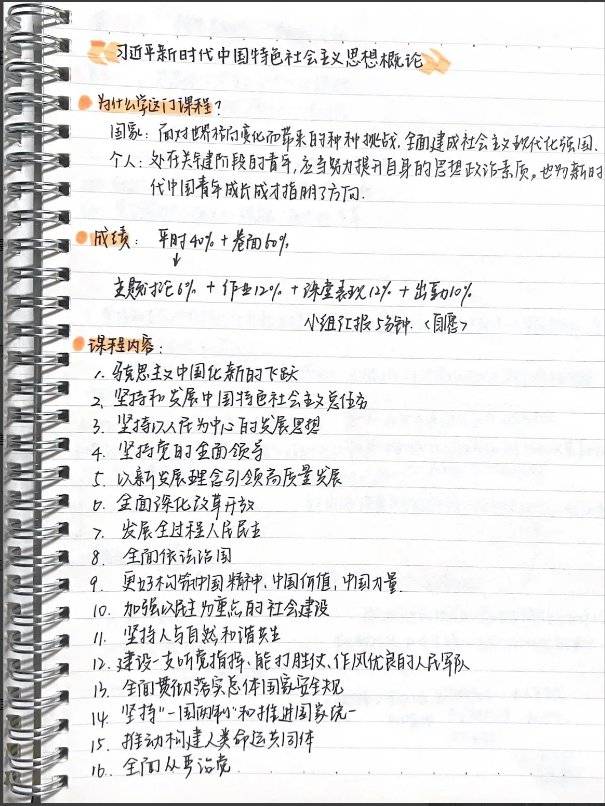 习近平新时代中国特色社会主义思想概论
为什么学这门课程？
国家：面对世界格局变化而带来的种种挑战，全面建成社会主义现代化强国．
个人：处在关键阶段的青年，应当努力提升自身的思想政治素质。也为新时
代中国青年成长成才指明了方向．
成绩：平时40%＋卷面60%
↓
主题讨论6%＋作业12%＋课堂表现12%＋出勤10%
小组汇报5分钟．〈自愿〉
课程内容：
1. 马克思主义中国化新的飞跃
2. 坚持和发展中国特色社会主义总任务
3. 坚持以人民为中心的发展思想
4. 坚持党的全面领导
5. 以新发展理念引领高质量发展
6. 全面深化改革开放
7. 发展全过程人民民主
8. 全面依法治国
9. 更好构筑中国精神，中国价值，中国力量．
10. 加强以民生为重点的社会建设
11. 坚持人与自然和谐共生
12. 建设一支听党指挥、能打胜仗、作风优良的人民军队
13. 全面贯彻落实总体国家安全观
14. 坚持“一国两制”和推进国家统一
15. 推动构建人类命运共同体
16. 全面从严治党